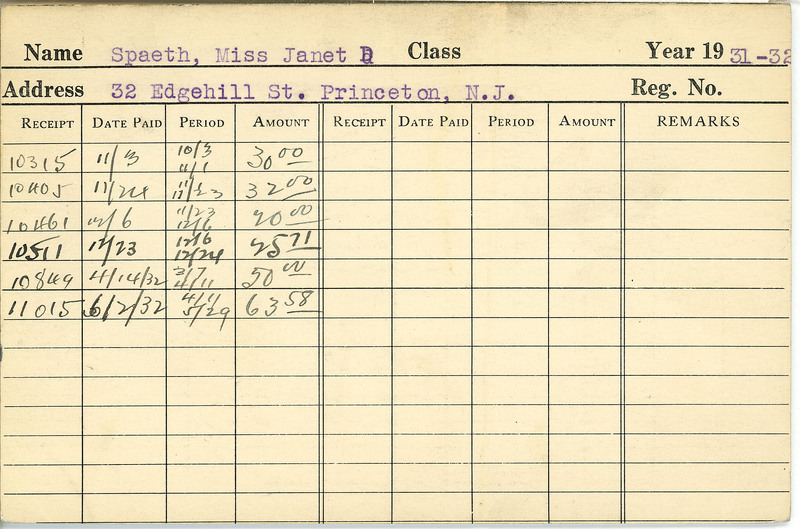 Name Spaeth, Miss Janet D Class Year 19 31-32
Address 32 Edgehill St. Princeton, N.J. Reg. No.
RECEIPT DATE PAID PERIOD AMOUNT RECEIPT DATE PAID PERIOD AMOUNT REMARKS
10315 11/3 10/3 11/1 30 00
10405 11/24 11/23 32 00
10461 12/6 11/23 12/6 20 00
10511 12/23 12/6 12/24 25 71
10849 4/14/32 3/7 4/11 50 00
11015 6/2/32 4/11 5/29 63 58